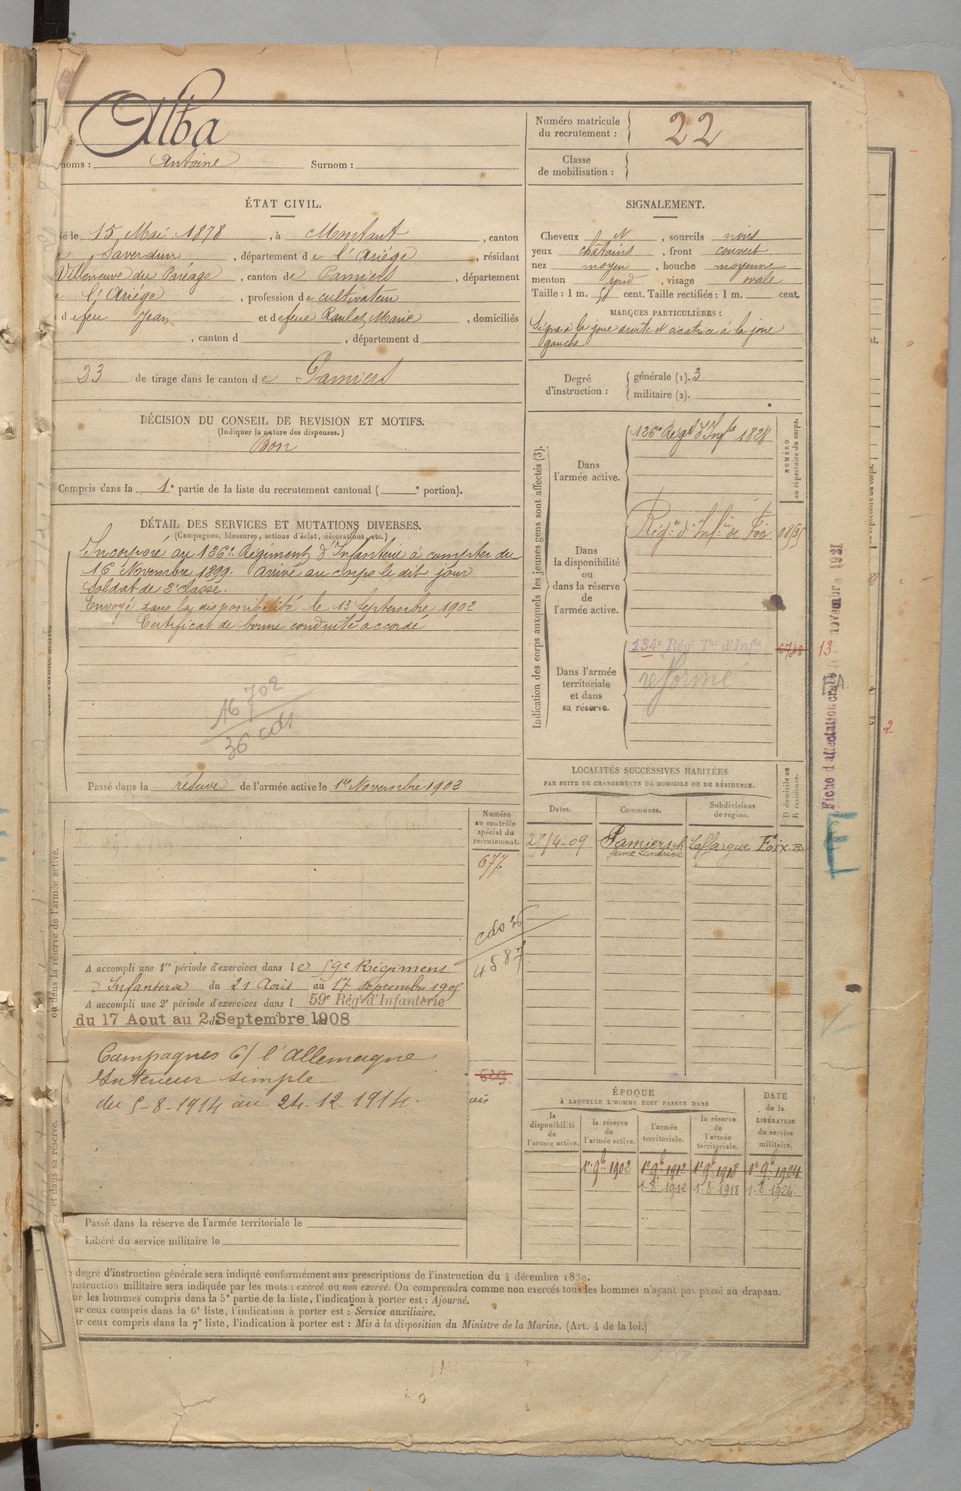 Alba
noms : Antoine Surnom :
ÉTAT CIVIL.
né le 15 Mai 1878, à Montaut, canton
Saverdun, département de l'Ariége, résidant
Villeneuve du Paréage, canton de Pamiers, département
l'Ariége, profession de cultivateur
de feu Jean et de feue Marie, domiciliés
, canton d , département d
23 de tirage dans le canton de Pamiers
DÉCISION DU CONSEIL DE REVISION ET MOTIFS.
(Indiquer la nature des dispenses.)
Bon
Compris dans la 1e partie de la liste du recrutement cantonal ( e portion).
DÉTAIL DES SERVICES ET MUTATIONS DIVERSES.
(Campagnes, blessures, actions d'éclat, décorations, etc.)
Incorporé au 136e Régiment d'Infanterie à compter du
16 Novembre 1899. Arrivé au corps le dit jour
Soldat de 2e classe.
Envoyé dans la disponibilité le 13 Septembre 1902
Certificat de bonne conduite accordé
16702
36 cds
Passé dans la réserve de l'armée active le 1er Novembre 1902
Numéro
au contrôle
spécial du
recrutement.
677
cds 36
4587
A accompli une 1re période d'exercices dans le 59e Régiment
d'Infanterie du 21 Août au 17 Septembre 1905
A accompli une 2e période d'exercices dans l 59e Régt d'Infanterie
du 17 Aout au 2 Septembre 1908
Campagnes C/ l'Allemagne
Intérieur simple
du 5-8-1914 au 24.12.1914.
Passé dans la réserve de l'armée territoriale le
Libéré du service militaire le
Numéro matricule
du recrutement : 22
Classe
de mobilisation :
SIGNALEMENT.
Cheveux N, sourcils noirs
yeux châtains, front couvert
nez moyen, bouche moyenne
menton rond, visage ovale
Taille : 1 m. 58 cent. Taille rectifiée : 1 m. cent.
MARQUES PARTICULIÈRES :
Signe à la joue droite et cicatrice à la joue
gauche
Degré
d'instruction :
générale (1). 3
militaire (2).
Indication des corps auxquels les jeunes gens sont affectés (3).
NUMÉRO
au répertoire du corps.
Dans
l'armée active.
136e Régt d'Infie
Dans
la disponibilité
ou
dans la réserve
de
l'armée active.
Régt d'Infie de Foix
Dans l'armée
territoriale
et dans
sa réserve.
134e Régt Tal d'Infie
réformé
13
Fiche d'affectation novembre 1921
LOCALITÉS SUCCESSIVES HABITÉES
PAR SUITE DE CHANGEMENTS DE DOMICILE OU DE RÉSIDENCE.
Dates. Communes. Subdivisions
de région. D domicile ou
R résidence.
27/4-09 Pamiers Laffargue Foix R
ÉPOQUE
À LAQUELLE L'HOMME DOIT PASSER DANS
la
disponibilité
de
l'armée active.
la réserve
de
l'armée active.
l'armée
territoriale.
la réserve
de
l'armée
territoriale.
DATE
de la
LIBÉRATION
du service
militaire.
1er 9b 1902 1er 9b 1912 1er 9b 1918 1er 9b 1924
1.8.1912 1.8.1918 1.8.1924.
degré d'instruction générale sera indiqué conformément aux prescriptions de l'instruction du 4 décembre 1889.
instruction militaire sera indiquée par les mots : exercé ou non exercé. On comprendra comme non exercés tous les hommes n'ayant pas passé au drapeau.
ur les hommes compris dans la 5e partie de la liste, l'indication à porter est : Ajourné.
ur ceux compris dans la 6e liste, l'indication à porter est : Service auxiliaire.
ur ceux compris dans la 7e liste, l'indication à porter est : Mis à la disposition du Ministre de la Marine. (Art. 4 de la loi.)